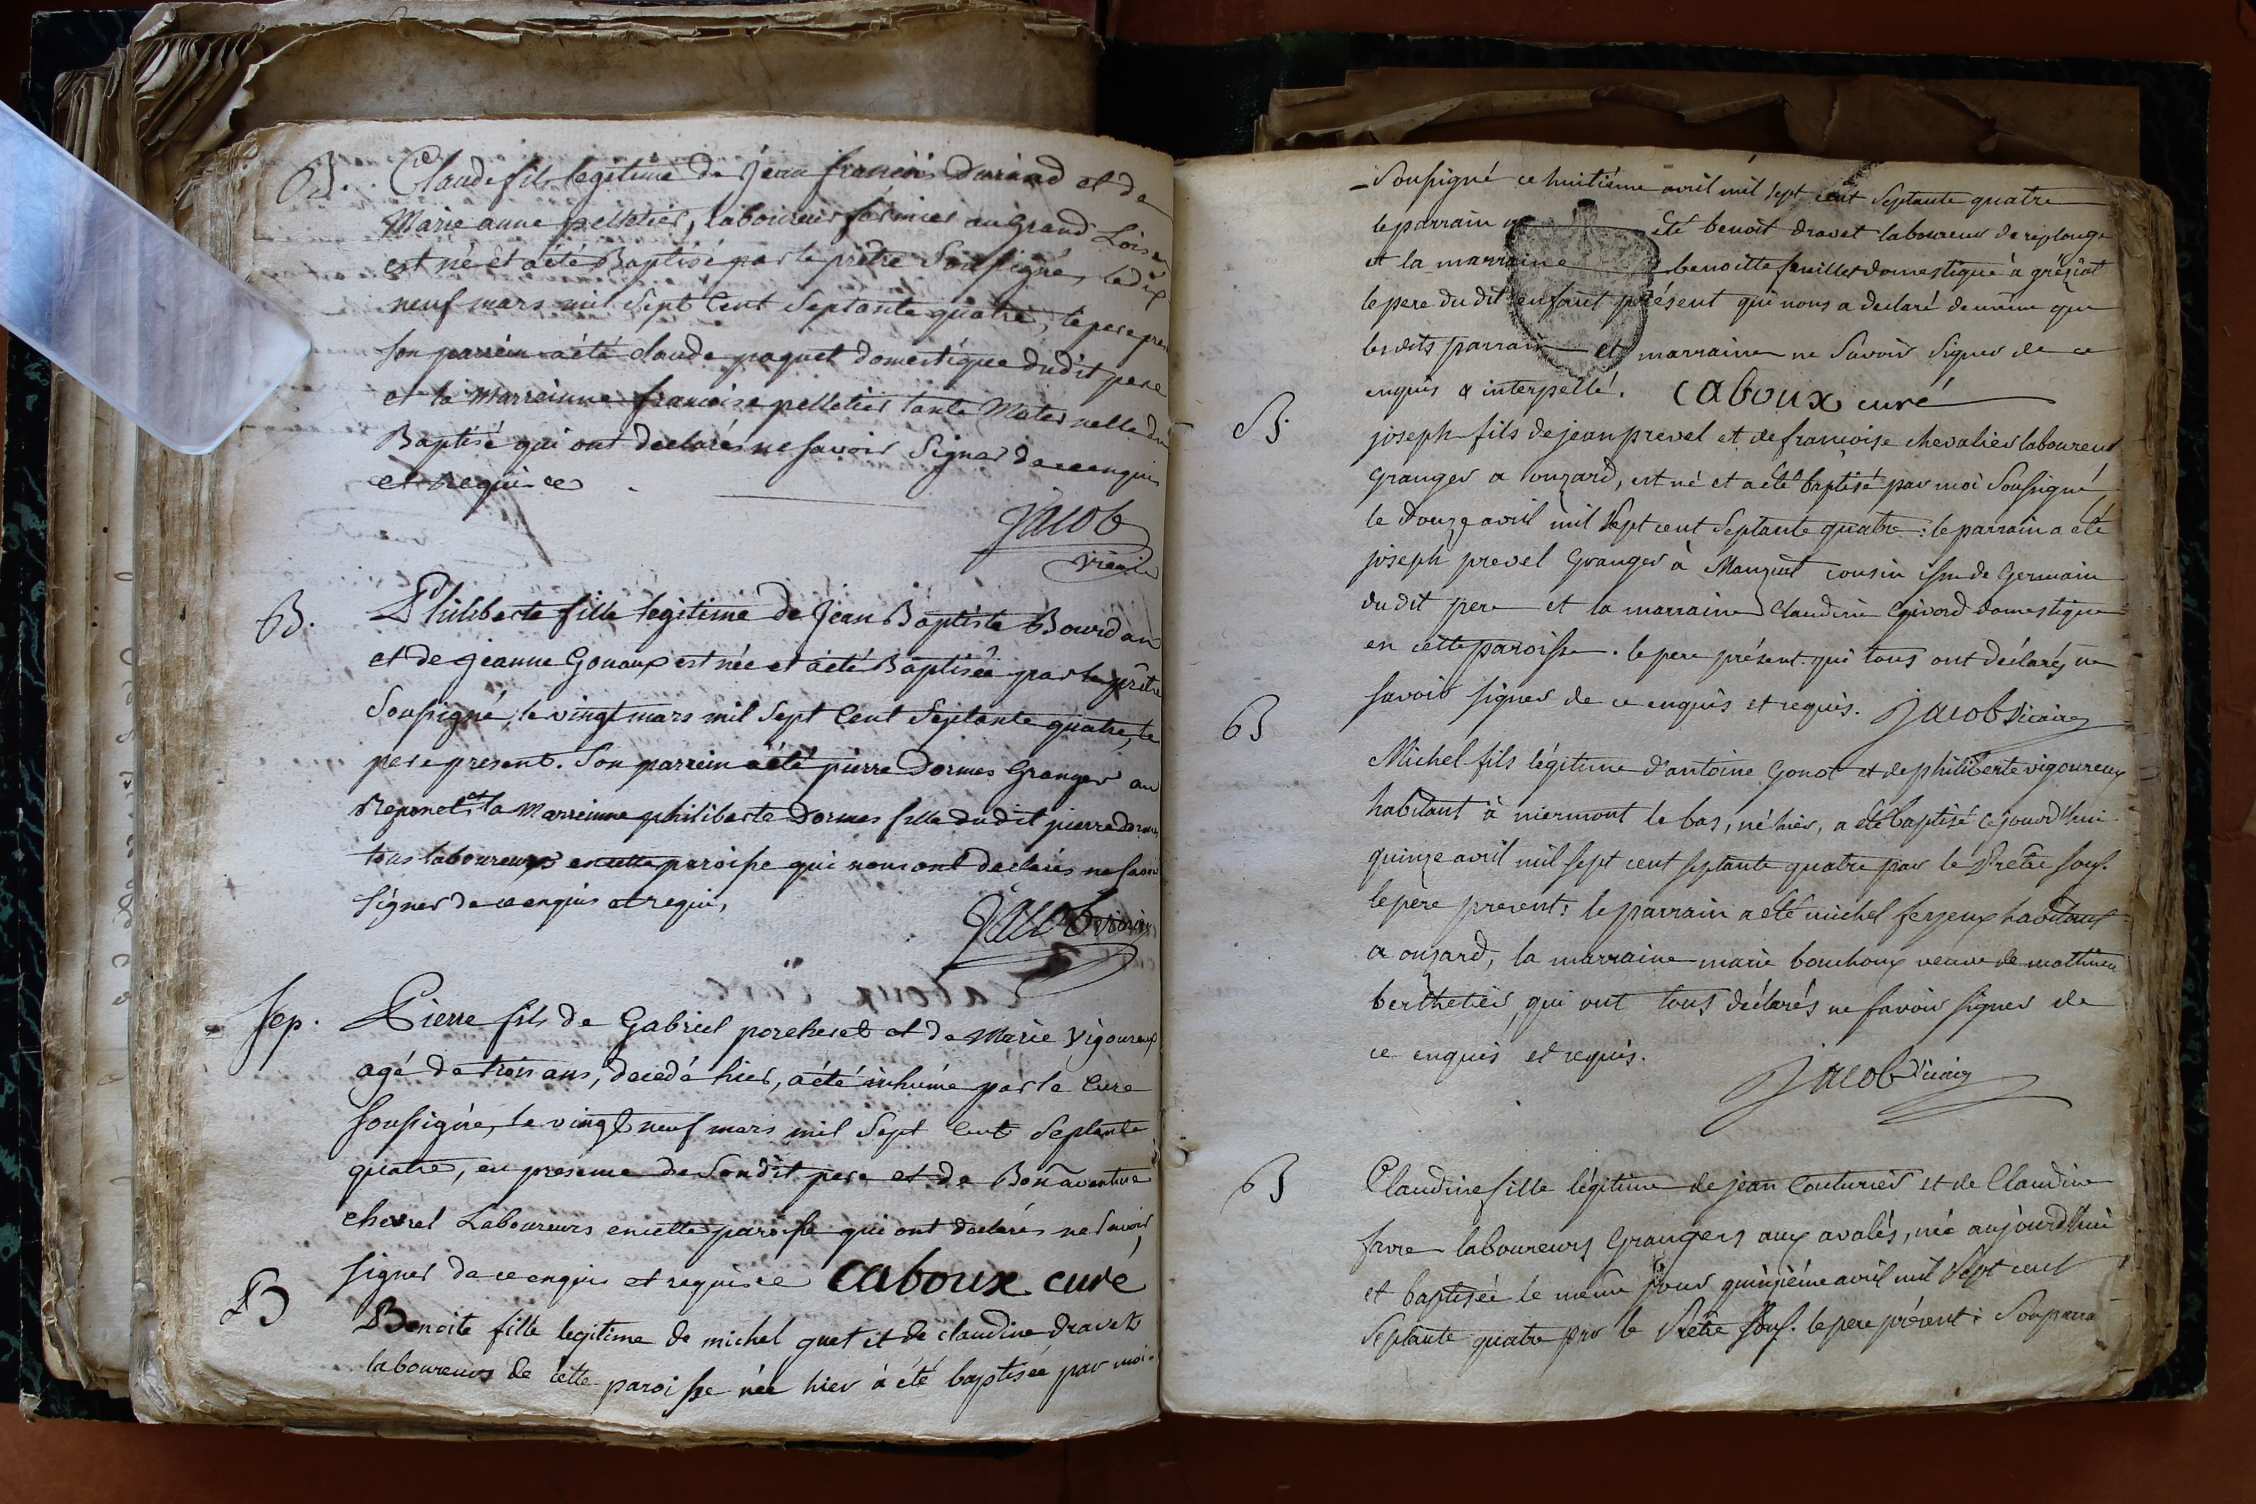 B. Claude fils legitime de Jean francois Durand et de
Marie anne pelletier, laboureur fermier au Grand Loise
est né et a eté Baptisé par le prêtre Soussigné, le dix
neuf mars mil Sept Cent Septante quatre, le pere pres
Son parrein a été claude paquet domestique dudit pere
et la Marreinne francoise pelletier tante Maternelle du
Baptisé qui ont declarés ne savoir Signer de ce enquis
et requis ce
Jacob
vicaire
B. Philiberte fille legitime de Jean Baptiste Bourdon
et de jeanne Gonaux est née et a été Baptisée par le prêtre
Soussigné, le vingt mars mil Sept Cent Septante quatre, le
pere present. Son parrein a été pierre Dormes Granger au
et la Marreinne philiberte Dormes fille dudit pierre Dormes
tous laboureurs en cette paroisse qui nous ont declarés ne savoir
Signer de ce enquis et requis,
Jacob vicaire
Sep. Pierre fils de Gabriel porcheret et de Marie Vigoureux
agé de trois ans, decedé hier, a été inhumé par le Cure
Soussigné, le vingt neuf mars mil Sept Cent Septante
quatre, en presence de Son dit pere et de Bonaventure
chevrel Laboureurs en cette paroisse qui ont declarés ne Savoir
signer de ce enquis et requis ce Caboux cure
B Benoite fille legitime de michel guet et de claudine dravet
laboureurs de cette paroisse née hier à été baptisée par moi
Soussigné ce huitiéme avril mil sept cent Septante quatre
le parrain a été benoit dravet laboureur de replonge
et la marraine benoitte feuillet domestique à gréziat
le pere du dit enfant présent qui nous a declaré de même que
les dits parrain et marraine ne Savoir Signer de ce
enquis & interpellé. Caboux curé
B. joseph fils de jean prevel et de francoise chevalier laboureur
Granger a onzard, est né et a été baptisé par moi Soussigné
le douze avril mil Sept cent Septante quatre : le parrain a été
joseph prevel Granger à Manziat cousin issu de Germain
du dit pere et la marraine Claudine domestique
en cette paroisse. le pere présent. qui tous ont déclarés ne
savoir signer de ce enquis et requis. Jacob vicaire
B Michel fils légitime d'antoine Gonot et de philiberte vigoureux
habitant à niermont le bas, né hier, a été baptisé cejourd'hui
quinze avril mil sept cent septante quatre par le Prêtre sous.
le père present : le parrain a été michel ferjeux habitant
a onzard, la marraine marie bouchoux veuve de mathieu
berthelier, qui ont tous déclarés ne savoir signer de
ce enquis et requis.
Jacob vicaire
B Claudine fille légitime de jean Couturier et de Claudine
favre laboureurs Grangers aux avalés, née aujourd'hui
et baptisée le même jour quinziéme avril mil Sept cent
Septante quatre par le Prêtre sous. le pere présent : Son parra